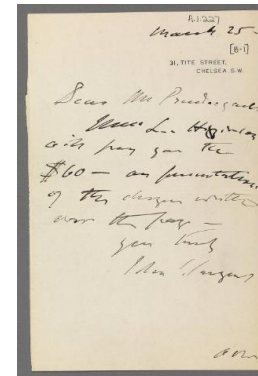 A.1.227
March 25-
[B-1]
31, TITE STREET,
CHELSEA. S.W.
Dear Mr Prendergast
Lee Higginson
will pay you the
$60 — on presentation
of the cheque written
over the page —
yrs truly
John S Sargent